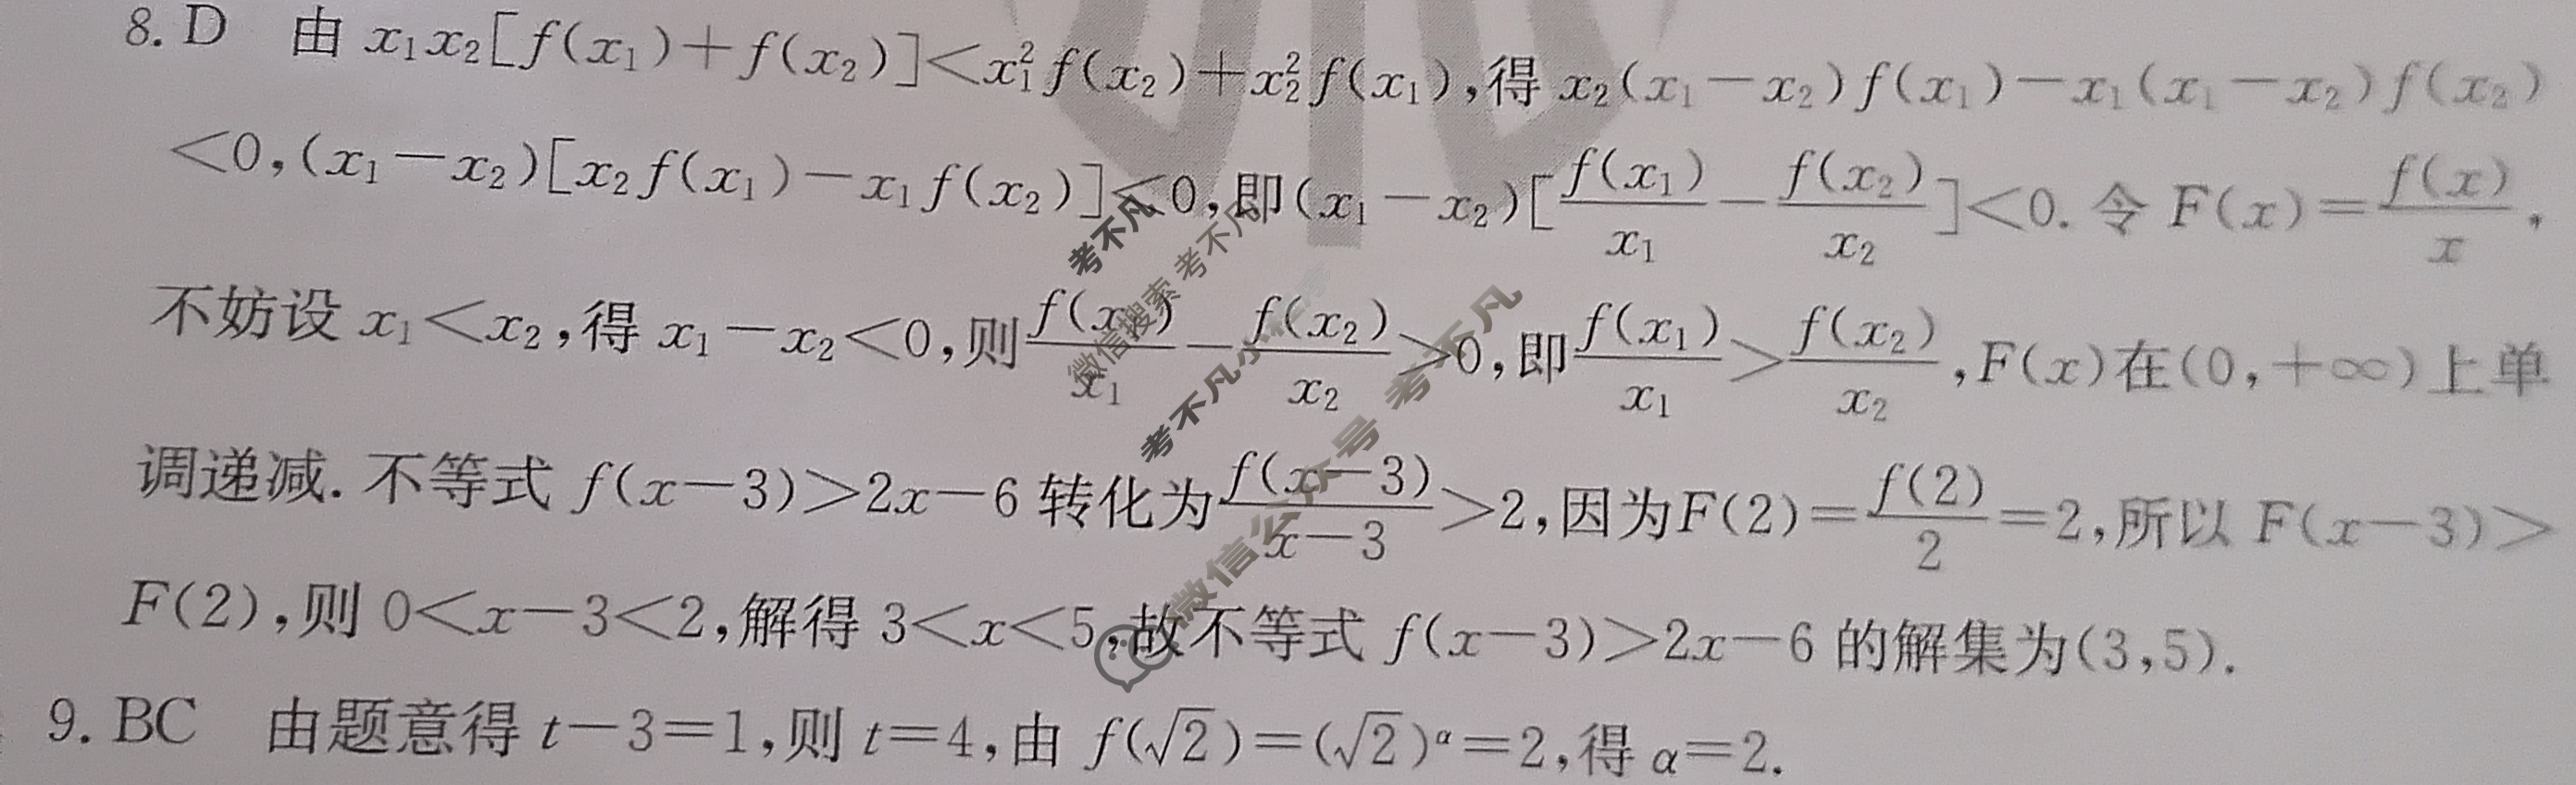 8. D 由 x₁x₂[f(x₁)+f(x₂)]<x₁²f(x₂)+x₂²f(x₁),得 x₂(x₁-x₂)f(x₁)-x₁(x₁-x₂)f(x₂)
<0,(x₁-x₂)[x₂f(x₁)-x₁f(x₂)]<0,即(x₁-x₂)[f(x₁)/x₁-f(x₂)/x₂]<0. 令 F(x)=f(x)/x,
不妨设 x₁<x₂,得 x₁-x₂<0,则f(x₁)/x₁-f(x₂)/x₂>0,即f(x₁)/x₁>f(x₂)/x₂,F(x)在(0,+∞)上单
调递减. 不等式 f(x-3)>2x-6 转化为f(x-3)/(x-3)>2,因为F(2)=f(2)/2=2,所以 F(x-3)>
F(2),则 0<x-3<2,解得 3<x<5,故不等式 f(x-3)>2x-6 的解集为(3,5).
9. BC 由题意得 t-3=1,则 t=4,由 f(√2)=(√2)^α=2,得 α=2.
考不凡
微信搜索 考不凡
考不凡小程序
微信公众号 考不凡